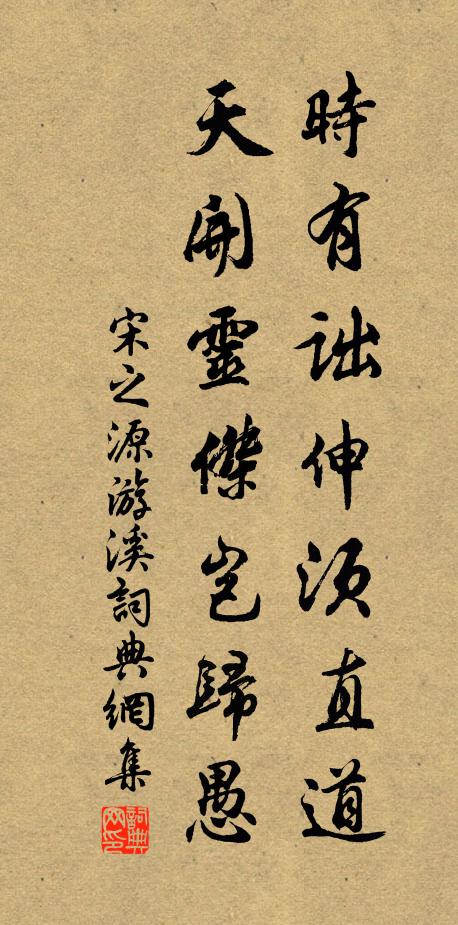 時有詘伸須直道
天開靈傑豈歸愚
宋之源游溪詞典網集
詞典网印